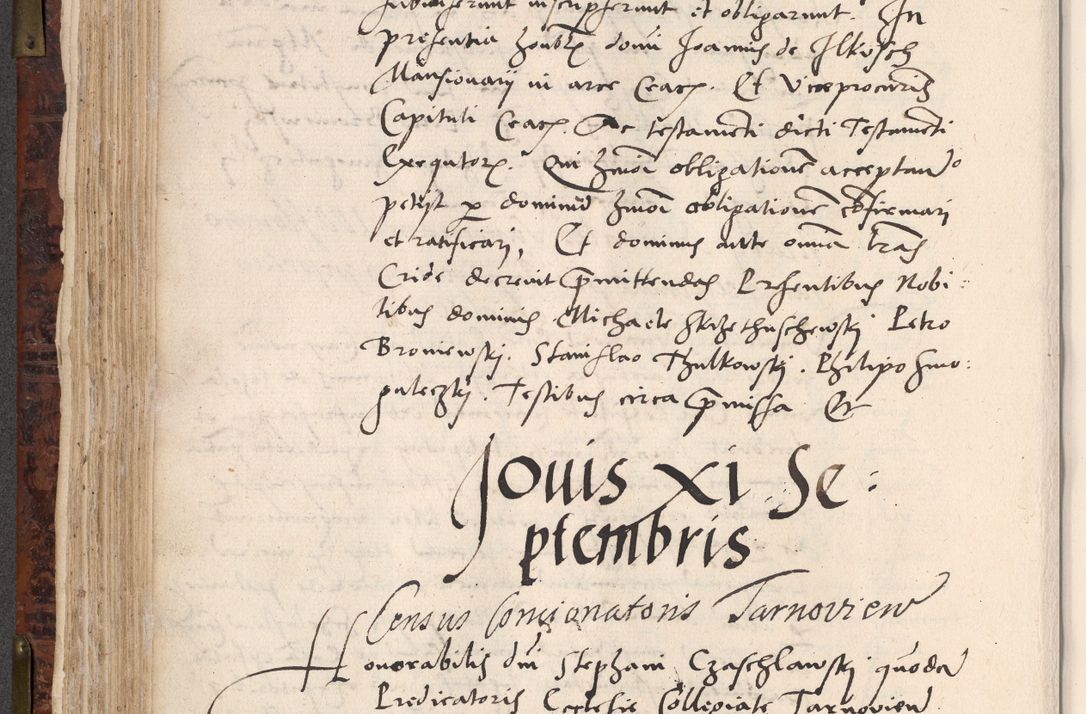 subinserunt inscripserunt et obligarunt. In
presentia honblis domi Joannis de Ilkusch
Mansionarij in arce Crac. Et viceprocuris
Capituli Crac. Ac testamenti dicti Testamenti
Exequutor. Qui hmoi obligationem acceptando
petijt per dominum hmoi obligationem confirmari
et ratificari, Et dominus aute omnia lras
Cride decrevit pmittendas Presentibus Nobi:
libus dominis Michaele Petro
Broniewskj. Stanislao Thulkowskj. Philipo Smo:
guleczkj. Testibus circa pmissa Et
Jouis XI Se:
ptembris
Census Concionatoris Tarnovien
Honorabilis dni Stephani Czaschlawskj quodam
Predicatoris Ecclesie Collegiate Tarnovien